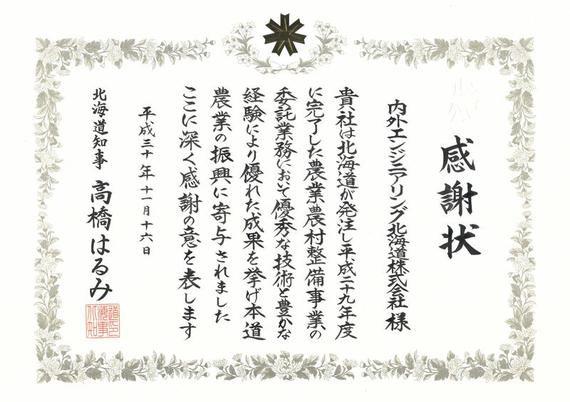 感謝状
内外エンジニアリング北海道株式会社 様
貴社は北海道が発注し平成二十九年度
に完了した農業農村整備事業の
委託業務において優秀な技術と豊かな
経験により優れた成果を挙げ本道
農業の振興に寄与されました
ここに深く感謝の意を表します
平成三十年十一月十六日
北海道知事 高橋はるみ